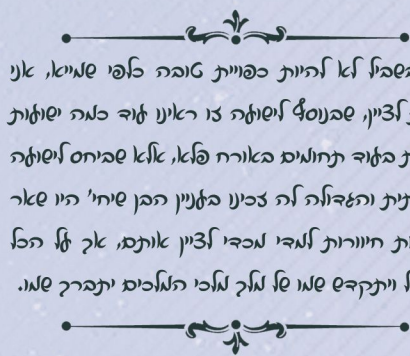 בשביל לא להיות כפויית טובה כלפי שמייא, אני
לציין, שבנוסף לישועה זו ראינו עוד כמה ישועות
בעוד תחומים באורח פלא, אלא שביחס לישועה
והגדולה לה זכינו בענין הבן שיחי' היו שאר
חיוורות למדי מכדי לציין אותם, אך על הכל
ויתקדש שמו של מלך מלכי המלכים יתברך שמו.